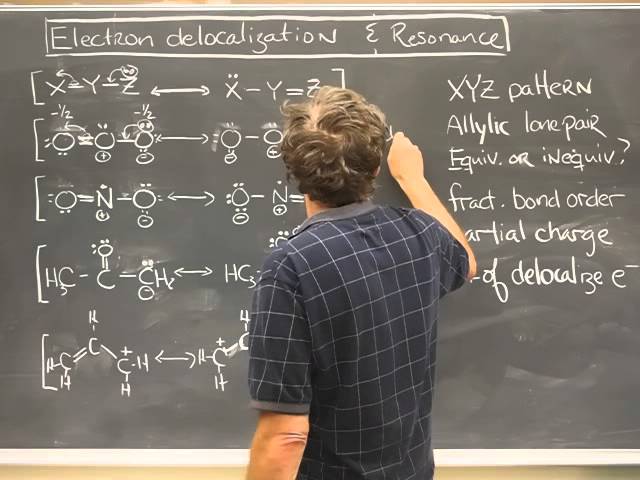 Electron delocalization & Resonance
[ X=Y-Z ↔ X-Y=Z ]
-1/2 -1/2
[ :O=O-O: ↔ :O-O
[ :O=N-O: ↔ :O-N=
:O:
[ H3C-C-CH2 ↔ HC3-
H H
[ H-C=C-C-H ↔ H-C
H H H
XYZ pattern
Allylic lone pair
Equiv. or inequiv.?
fract. bond order
artial charge
-of delocalize e-